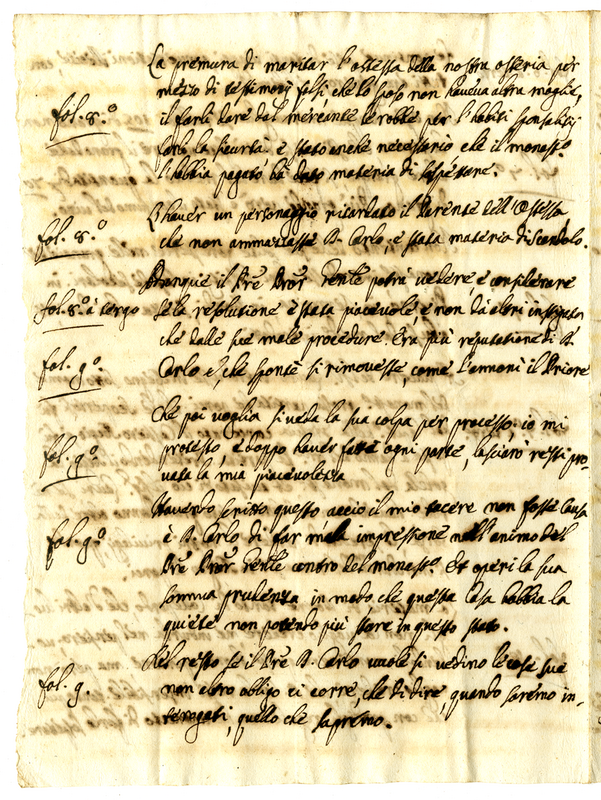 La premura di maritar l'ostessa della nostra osteria per
mezzo di testimonij falsi, che lo sposo non haueua altra moglie,
fol. 8.º
il farli dare dal mercante le robbe per l'habiti sponsalitij
la sicurtà è stato anche necessario che il monastº.
l'habbia pagato ha dato materia di sospettare.
L'hauer un personaggio ricordato il Parente dell'Ostessa
fol. 8.º
che non ammazzasse D. Carlo, è stata materia di scandolo.
Dunque il Pre Pror Gente potrà uedere, e considerare
fol. 8.º à tergo
se la resolutione è stata piaceuole, e non da altri instigata
che dalle sue male procedure. Era più reputatione di D.
fol. 9º.
Carlo è, che sponte si rimouesse, come l'ammonì il Priore
Che poi uoglia si ueda la sua colpa per processo, io mi
fol. 9.º
protesto, e doppo hauer fatte ogni parte, lascierò resti pro-
uata la mia piaceuolezza
Hauendo scritto questo acciò il mio tacere non fosse causa
fol. 9º.
è D. Carlo di far mala impressione nell'animo del
Pre Pror Gente contro del monastº. Et operi la sua
somma prudenza in modo che questa Casa habbia la
quiete non potendo più stare in questo stato.
Del resto se il Pre D. Carlo uuole si uedino le cose sue
fol. 9.
non altro obligo ci corre, che di dire, quando saremo in-
terogati, quello che sapremo.